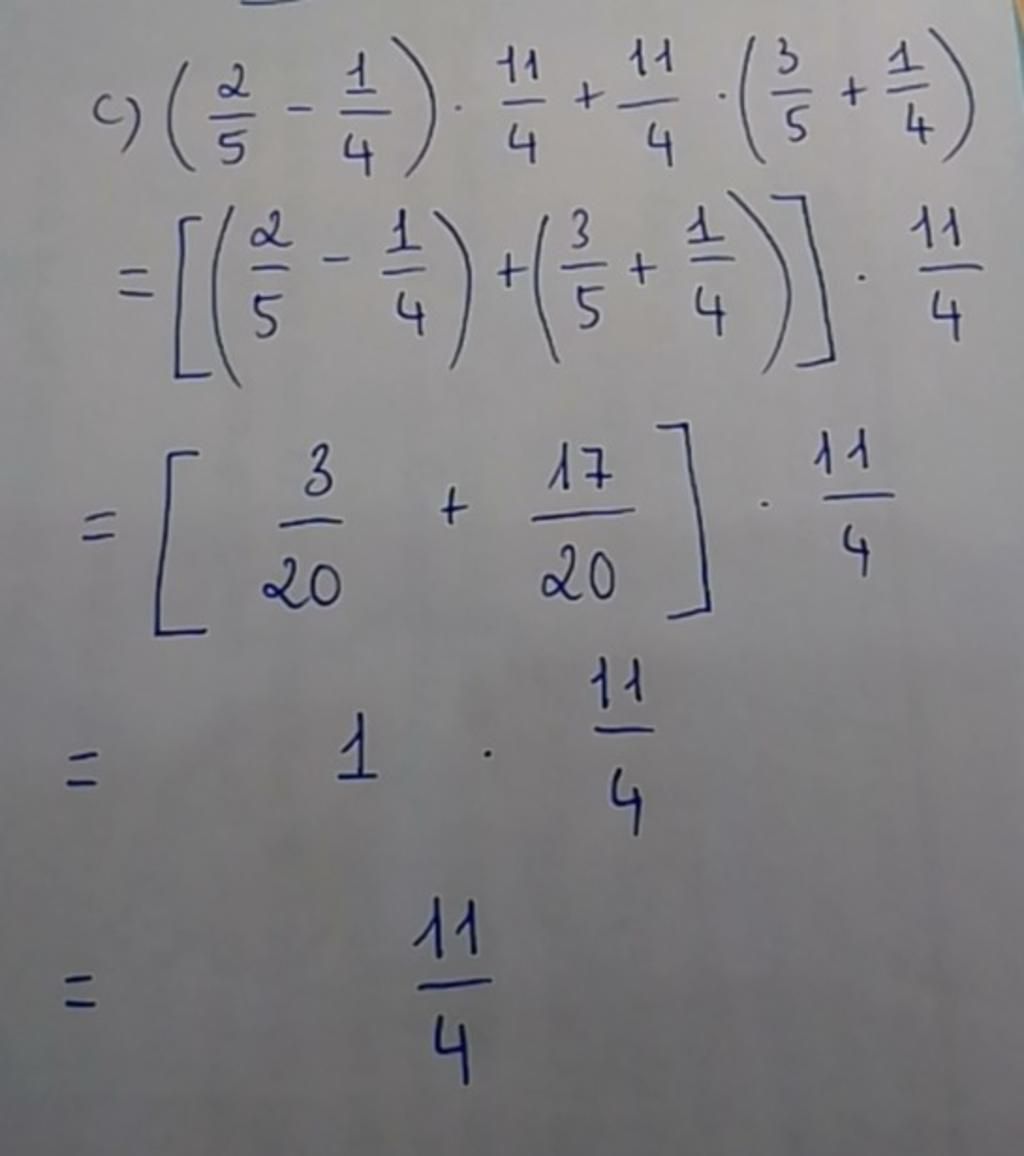 c) (2/5 - 1/4) · 11/4 + 11/4 · (3/5 + 1/4)
= [(2/5 - 1/4) + (3/5 + 1/4)] · 11/4
= [3/20 + 17/20] · 11/4
= 1 · 11/4
= 11/4